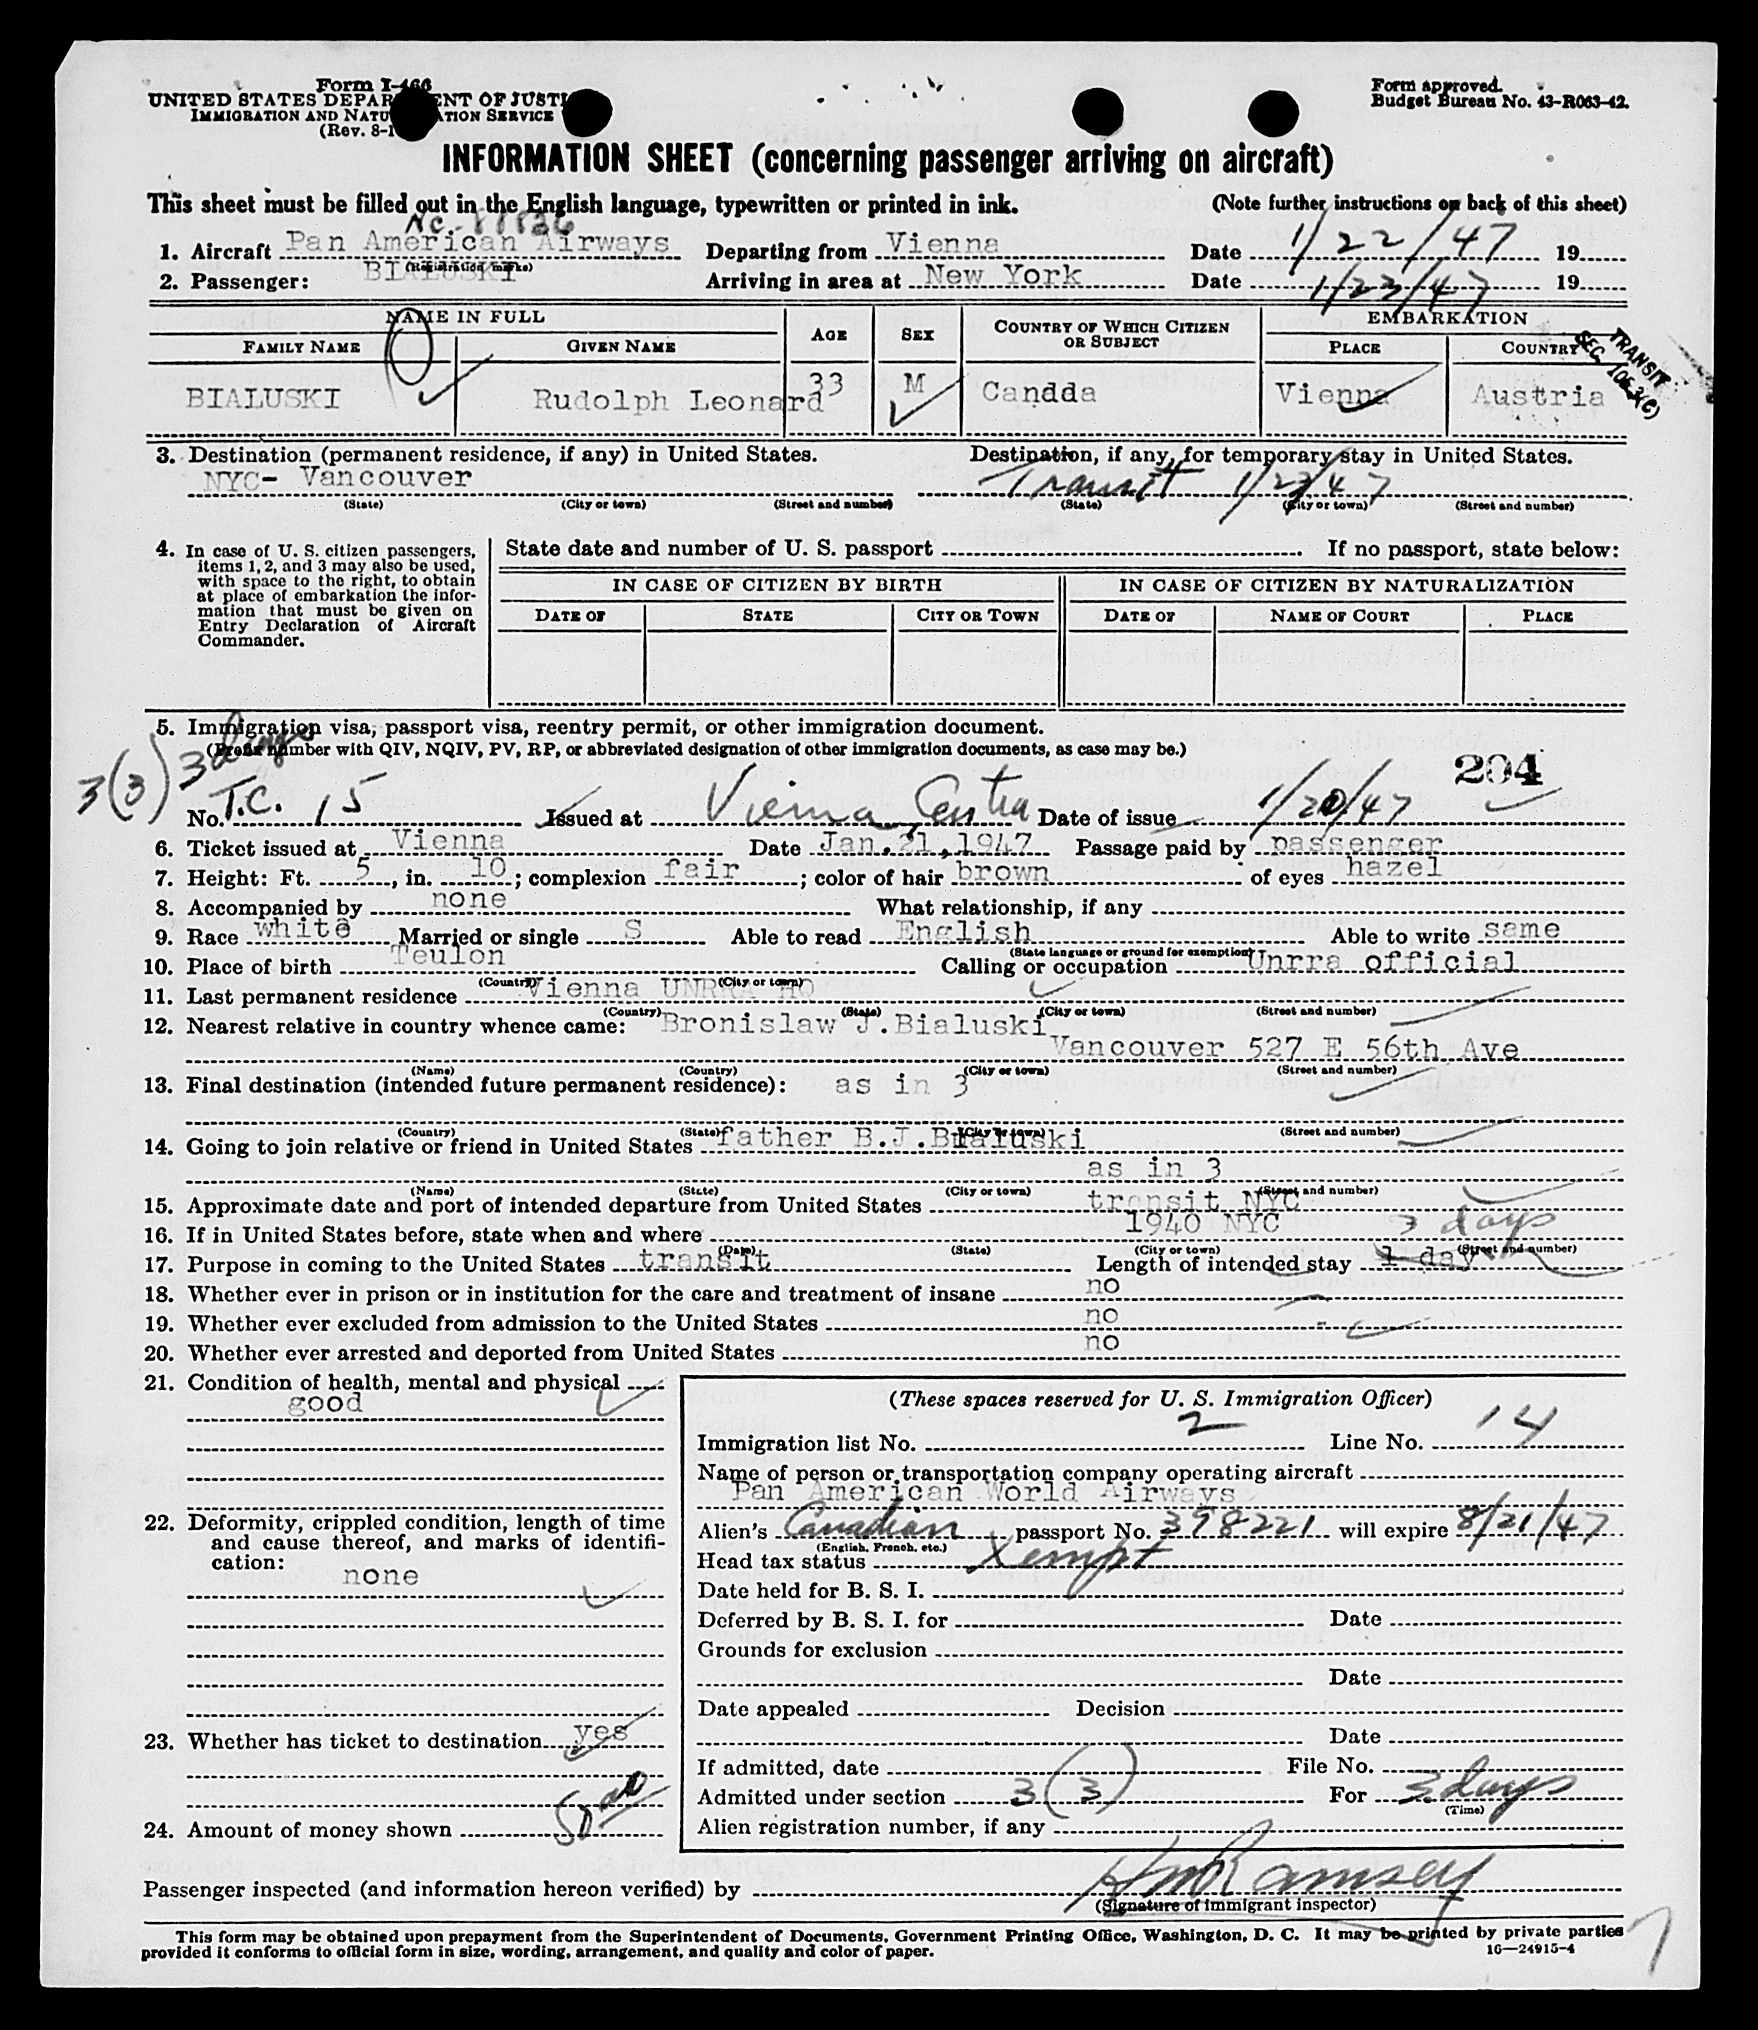 Form I-466
UNITED STATES DEPARTMENT OF JUSTICE
IMMIGRATION AND NATURALIZATION SERVICE
(Rev. 8-1
Form approved.
Budget Bureau No. 43-R063-42.
INFORMATION SHEET (concerning passenger arriving on aircraft)
This sheet must be filled out in the English language, typewritten or printed in ink. (Note further instructions on back of this sheet)
Nc-88836
1. Aircraft Pan American Airways Departing from Vienna Date 1/22/47 19
(Registration marks)
2. Passenger: BIALUSKI Arriving in area at New York Date 1/23/47 19
NAME IN FULL AGE SEX COUNTRY OF WHICH CITIZEN OR SUBJECT EMBARKATION
FAMILY NAME GIVEN NAME PLACE COUNTRY
TRANSIT
SEC. 105.3(C)
BIALUSKI Rudolph Leonard 33 M Candda Vienna Austria
3. Destination (permanent residence, if any) in United States. Destination, if any, for temporary stay in United States.
NYC- Vancouver Transit 1/23/47
(State) (City or town) (Street and number) (State) (City or town) (Street and number)
4. In case of U. S. citizen passengers, items 1, 2, and 3 may also be used, with space to the right, to obtain at place of embarkation the information that must be given on Entry Declaration of Aircraft Commander.
State date and number of U. S. passport If no passport, state below:
IN CASE OF CITIZEN BY BIRTH IN CASE OF CITIZEN BY NATURALIZATION
DATE OF STATE CITY OR TOWN DATE OF NAME OF COURT PLACE
5. Immigration visa, passport visa, reentry permit, or other immigration document.
(Prefix number with QIV, NQIV, PV, RP, or abbreviated designation of other immigration documents, as case may be.)
3(3) 3 days
204
No. T.C. 15 Issued at Vienna, Austria Date of issue 1/20/47
6. Ticket issued at Vienna Date Jan. 21, 1947 Passage paid by passenger
7. Height: Ft. 5, in. 10; complexion fair; color of hair brown of eyes hazel
8. Accompanied by none What relationship, if any
9. Race white Married or single S Able to read English Able to write same
(State language or ground for exemption)
10. Place of birth Teulon Calling or occupation Unrra official
(Country) (City or town)
11. Last permanent residence Vienna UNRRA HQ
(Country) (State) (City or town) (Street and number)
12. Nearest relative in country whence came: Bronislaw J.Bialuski
Vancouver 527 E 56th Ave
(Name) (Country) (City or town) (Street and number)
13. Final destination (intended future permanent residence): as in 3
(Country) (State) (City or town) (Street and number)
14. Going to join relative or friend in United States father B.J.Bialuski
as in 3
(Name) (State) (City or town) (Street and number)
15. Approximate date and port of intended departure from United States transit NYC
16. If in United States before, state when and where 1940 NYC
3 days
(Date) (State) (City or town) (Street and number)
17. Purpose in coming to the United States transit Length of intended stay 1 day
18. Whether ever in prison or in institution for the care and treatment of insane no
19. Whether ever excluded from admission to the United States no
20. Whether ever arrested and deported from United States no
21. Condition of health, mental and physical
good
22. Deformity, crippled condition, length of time and cause thereof, and marks of identification:
none
23. Whether has ticket to destination yes
24. Amount of money shown
(These spaces reserved for U. S. Immigration Officer)
Immigration list No. 2 Line No. 14
Name of person or transportation company operating aircraft
Pan American World Airways
Alien's Canadian passport No. 398221 will expire 8/21/47
(English, French, etc.)
Head tax status Xempt
Date held for B. S. I.
Deferred by B. S. I. for Date
Grounds for exclusion
Date
Date appealed Decision
Date
If admitted, date File No.
Admitted under section 3(3) For 3 days
(Time)
Alien registration number, if any
Passenger inspected (and information hereon verified) by Ramsey
(Signature of immigrant inspector)
This form may be obtained upon prepayment from the Superintendent of Documents, Government Printing Office, Washington, D. C. It may be printed by private parties
provided it conforms to official form in size, wording, arrangement, and quality and color of paper.
16—24915-4